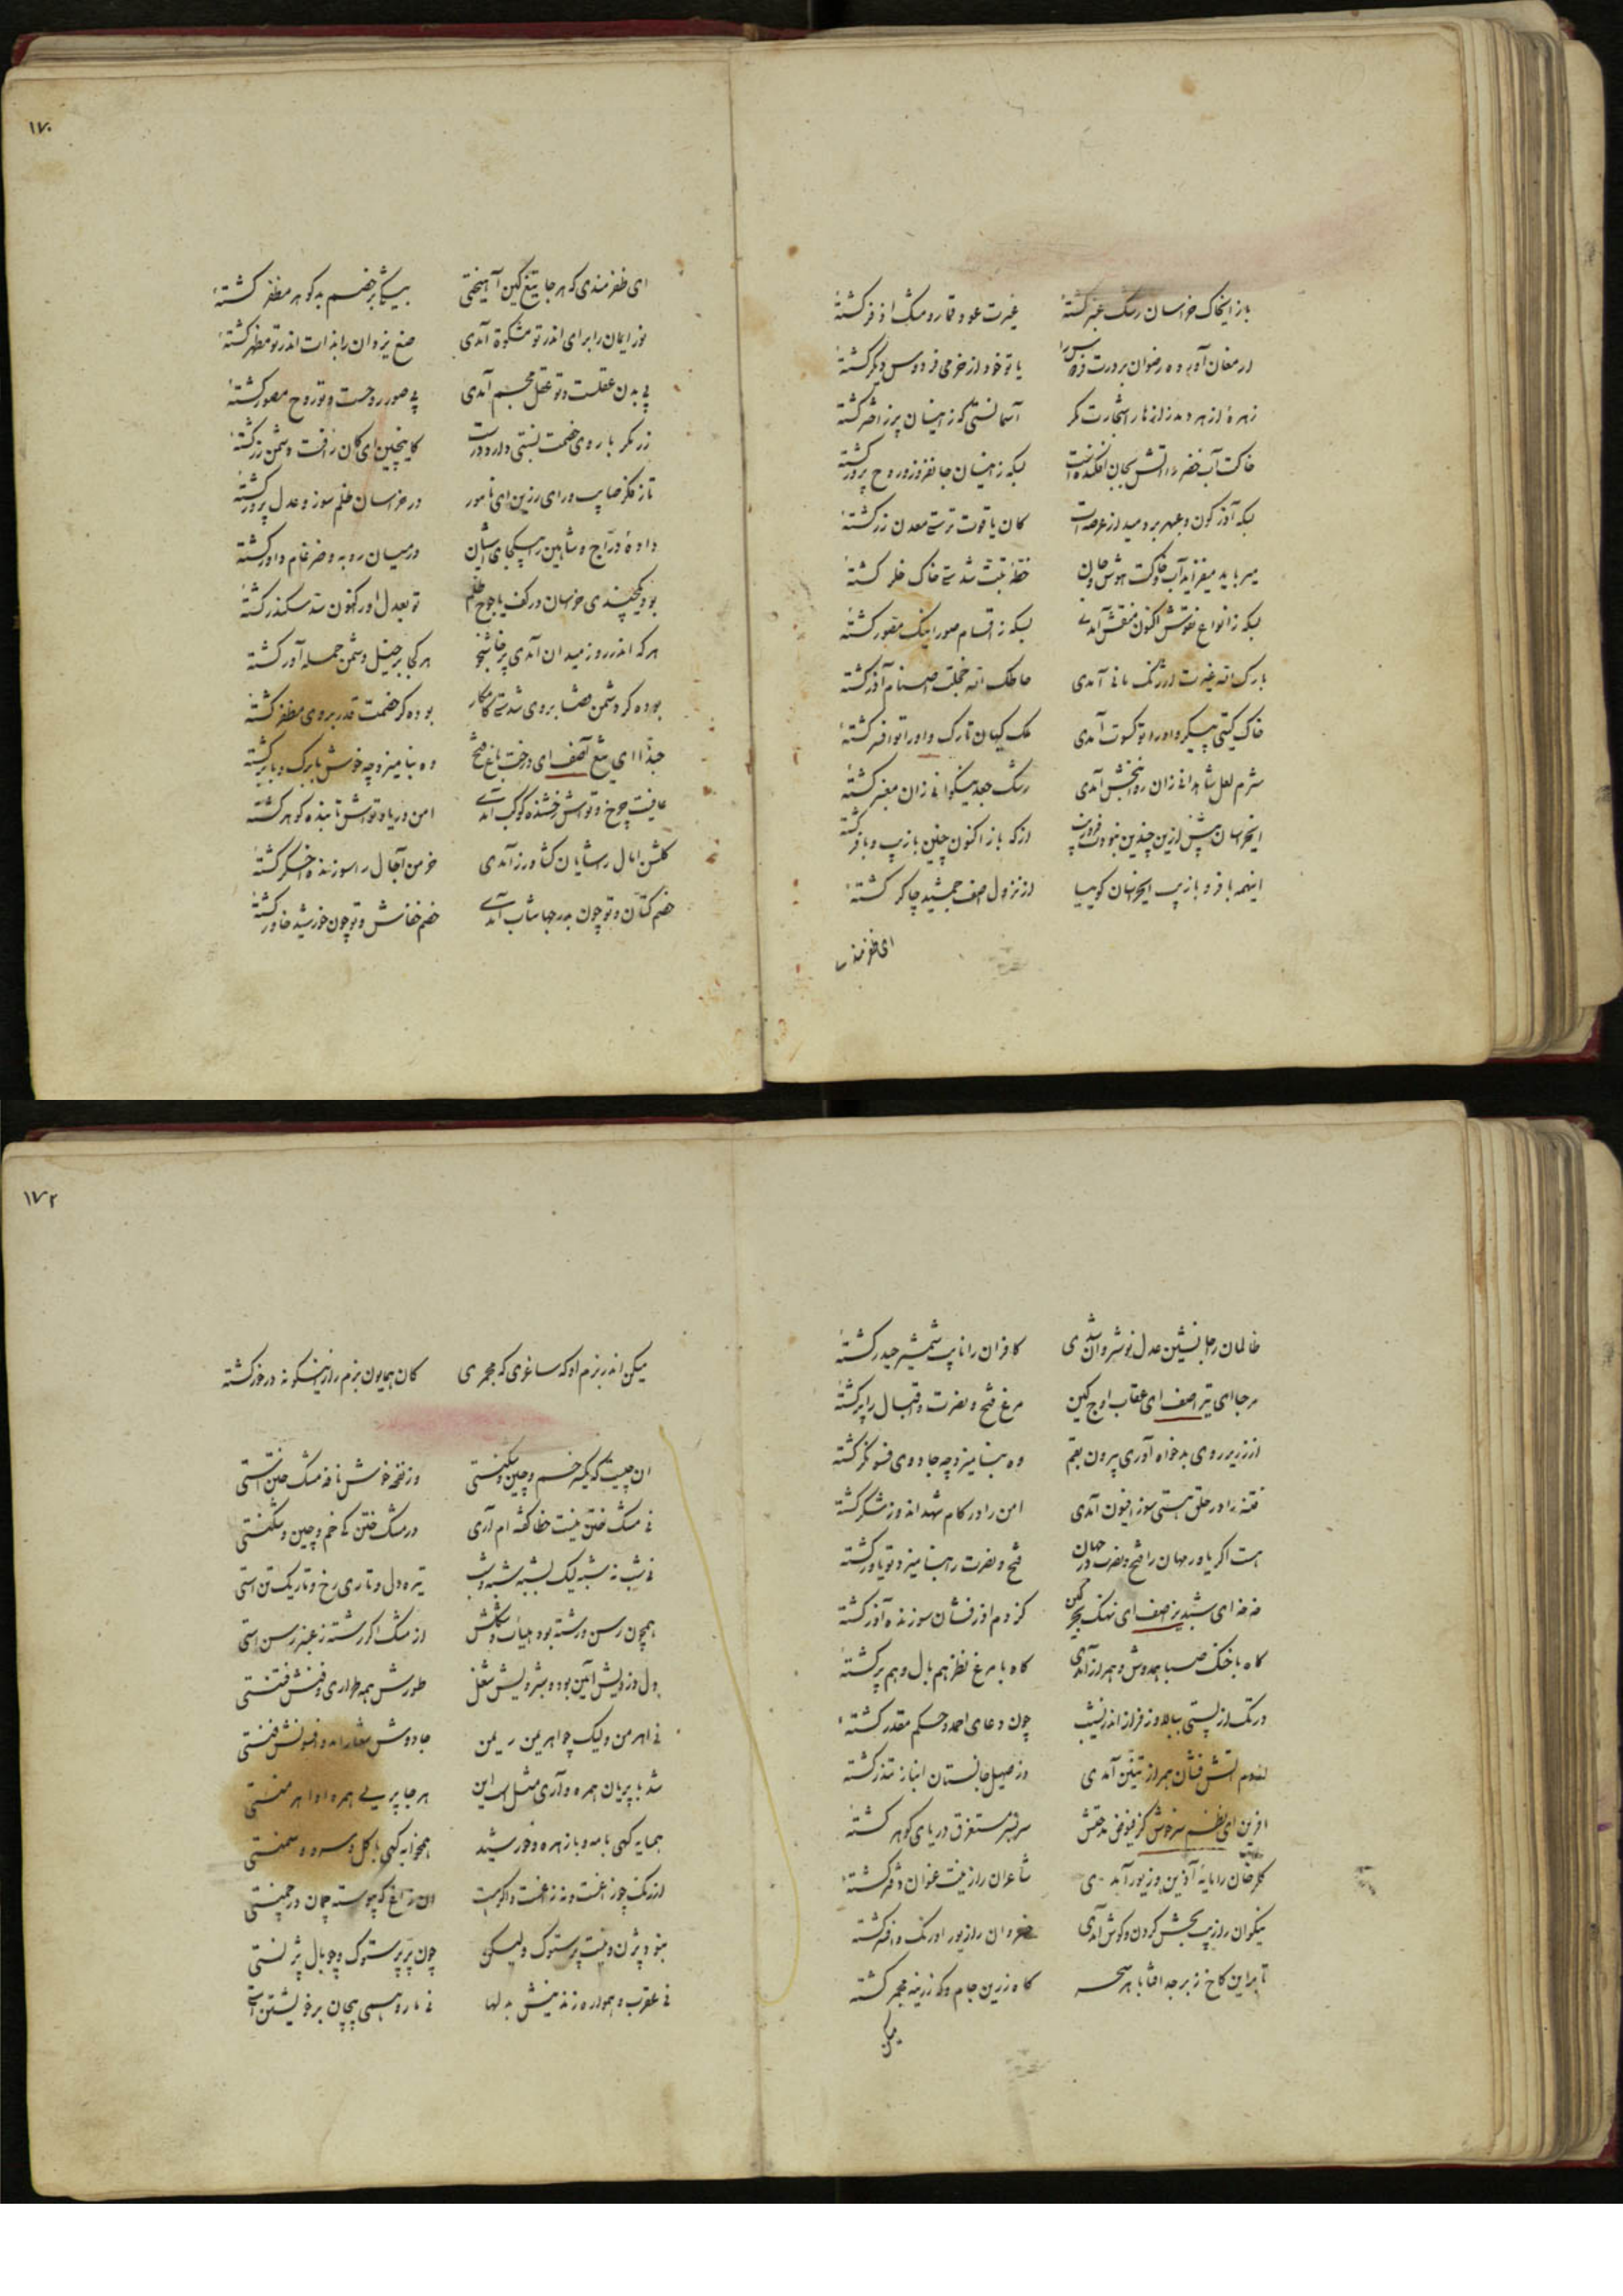 باز ایخاک خراسان رشک عنبر گشتهٔ غیرت عود قمار و مشک اذفر گشتهٔ
ارمغان آورده رضوان بر درت فردوس را یا تو خود از خرمی فردوس دیگر گشتهٔ
زهرهٔ ازهر دمد از ازهار اشجارت مگر آسمانستی که زینسان پرز اختر گشتهٔ
خاکت آب خضر را آتش بجان افکنده است بسکه زینسان جانفروز و روح پرور گشتهٔ
بسکه آذرگون و عبهر بر دمید از عرصه‌ات کان یاقوت ترستی معدن زر گشتهٔ
میرباید میفزاید آب و خاکت هوش و جان خطهٔ تبت شدستی خاک خلر گشتهٔ
بسکه ز انواع نقوش اکنون منقش آمدی بسکه ز اقسام صور اینک مصور گشتهٔ
بارک الله غیرت ارژنگ مانی آمدی حاطک الله خجلت اصنام آذر گشتهٔ
خاک گیتی پیکر و او را تو کسوت آمدی ملک کیهان تارک و او را تو افسر گشتهٔ
شرم لعل شاهدانی زان روانبخش آمدی رشک جعد نیکوانی زان معنبر گشتهٔ
ایخراسان پیش ازین چندین نبودت فر و زیب از که باز اکنون چنین با زیب و با فر گشتهٔ
اینهمه با فر و با زیب ایخراسان گوییا از نزول آصف جمشید چاکر گشتهٔ
ای ظفرمندی
۱۷۰
ای ظفرمندی که هر جا تیغ کین آهیختی بیشک بر خصم بدگوهر مظفر گشتهٔ
نور ایمان را برای اندر تو مشکوة آمدی صنع یزدان را بذات اندر تو مظهر گشتهٔ
بی بدن عقلست و تو عقل مجسم آمدی بی صور روحست و تو روح مصور گشتهٔ
زر مگر با روی خصمت نسبتی دارد درست کاینچنین ای کان رأفت دشمن زر گشتهٔ
تا ز فکر صایب و رای رزین ای نامور در خراسان ظلم سوز و عدل پرور گشتهٔ
داده دراج و شاهین را بیکجای آشیان در میان روبه و ضرغام داور گشتهٔ
بود یکچندی خراسان در کف یاجوج ظلم تو بعدل او را کنون سد سکندر گشتهٔ
هر که اندر روز میدان آمدی پرخاشجو هر کجا بر خیل دشمن حمله آور گشتهٔ
بوده گر دشمن قضا بر وی شدستی کامکار بوده گر خصمت قدر بر وی مظفر گشتهٔ
حبذا ای تیغ آصف ای درخت باغ فتح وه بنامیزد چه خوش با برگ و با بر گشتهٔ
عافیت چرخ و تواش رخشنده کوکب آمدی امن دریا و تواش تابنده گوهر گشتهٔ
گلشن امال را شایان کشاورز آمدی خرمن آجال را سوزنده اخگر گشتهٔ
خصم کتان و تو چون بدر جهانتاب آمدی خصم خفاش و تو چون خورشید خاور گشتهٔ
ظالمان را جانشین عدل نوشیروان شدی کافران را نایب شمشیر حیدر گشتهٔ
مرحبا ای تیر آصف ای عقاب اوج کین مرغ فتح و نصرت و اقبال را پر گشتهٔ
از زریر روی بدخواه آوری بیرون بقم وه بنامیزد چه جادوی فسونگر گشتهٔ
فتنه را در حلق هستی سوز افیون آمدی امن را در کام شهد اندوز شکر گشتهٔ
هست اگر یاور مهان را فتح و نصرت در جهان فتح و نصرت را بنامیزد تو یاور گشتهٔ
خه خه ای شبدیز آصف ای نهنگ بحر کین کز دم آذرفشان سوزنده آذر گشتهٔ
گاه با خنگ صبا همدوش و همراز آمدی گاه با مرغ نظر همبال و همپر گشتهٔ
در تک از پستی ببالا وز فراز اندر نشیب چون دعای احمد و حکم مقدر گشتهٔ
از دم آتش فشان همراز تنین آمدی وز صهیل جانستان انباز تندر گشتهٔ
آفرین ای نظم سرخوش کز فیوض مدحتش سربسر مستغرق دریای گوهر گشتهٔ
گلرخان را مایهٔ آذین و زیور آمدی شاعران را زینت عنوان دفتر گشتهٔ
نیکوان را زیب بخش گردن و گوش آمدی خسروان را زیور اورنگ و افسر گشتهٔ
تا برین کاخ زبرجد آفتاب هر سحر گاه زرین جام و گه زرینه مجمر گشتهٔ
میکن
۱۷۲
میکن اندر بزم او گه ساغری گه مجمری کان همایون بزم را زینگونه درخور گشتهٔ
ان چیست که یکسر خم و چین و شکنستی وز نفحه خوش نافهٔ مشک ختنستی
نی مشک ختن نیست خطا گفته ام آری در مشک ختن کی خم و چین و شکنستی
نی شب نه شبه لیک بشبه شبه و شب تیره دل و تاری رخ و تاریک تن استی
همچون رسن رشته بود هیأت و شکلش از مشک اگر رشته ز عنبر رسن استی
دل دزدیش آیین بود و بشرویش شغل طورش همه طراری و فنش فتنستی
نی اهرمن و لیک چو اهریمن ریمن جادوش شعار آمد و افسونش فنستی
شد با پریان همره و آری مثل است این هر جا پریی همره او اهرمنستی
همسایه گهی با مه و با زهره و خورشید همخوابه گهی با گل و سرو و سمنستی
از رنگ چو زاغست و نه زاغست و اگر هست ان زاغ که پیوسته چمان در چمنستی
نبود پژن و نیست پرستوک ولیکن چون پر پرستوک و چو بال پژنستی
نی عقرب و همواره زند نیش به دلها نی مار و همی پیچان بر خویشتن استی